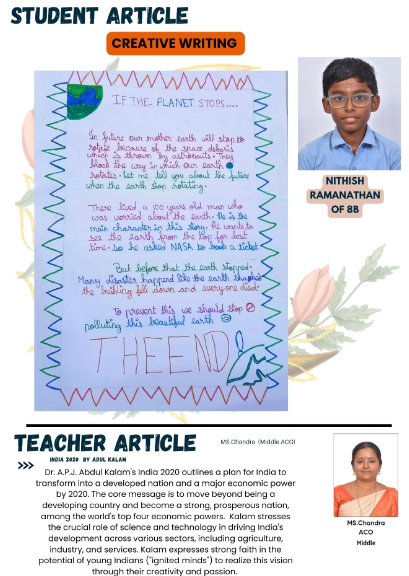 STUDENT ARTICLE
CREATIVE WRITING
IF THE PLANET STOPS....
In future our mother earth will stop to
rotate because of the space debris
which is thrown by astronauts. They
block the way in which our earth
rotates. let me tell you about the future
when the earth stop rotating.
There lived a 100 years old man who
was worried about the earth. He is the
main character in this story. He wants to
see the earth from the top for last
time. so he asked NASA to book a ticket
But before that the earth stopped.
Many disaster happend like the earth
the building fell down and everyone died.
To prevent this we should stop
polluting this beautiful earth
THE END
NITHISH
RAMANATHAN
OF 8B
TEACHER ARTICLE
MS.Chandra (Middle ACO)
INDIA 2020 BY ADUL KALAM
>>>
Dr. A.P.J. Abdul Kalam's India 2020 outlines a plan for India to
transform into a developed nation and a major economic power
by 2020. The core message is to move beyond being a
developing country and become a strong, prosperous nation,
among the world's top four economic powers. Kalam stresses
the crucial role of science and technology in driving India's
development across various sectors, including agriculture,
industry, and services. Kalam expresses strong faith in the
potential of young Indians ("ignited minds") to realize this vision
through their creativity and passion.
MS.Chandra
ACO
Middle